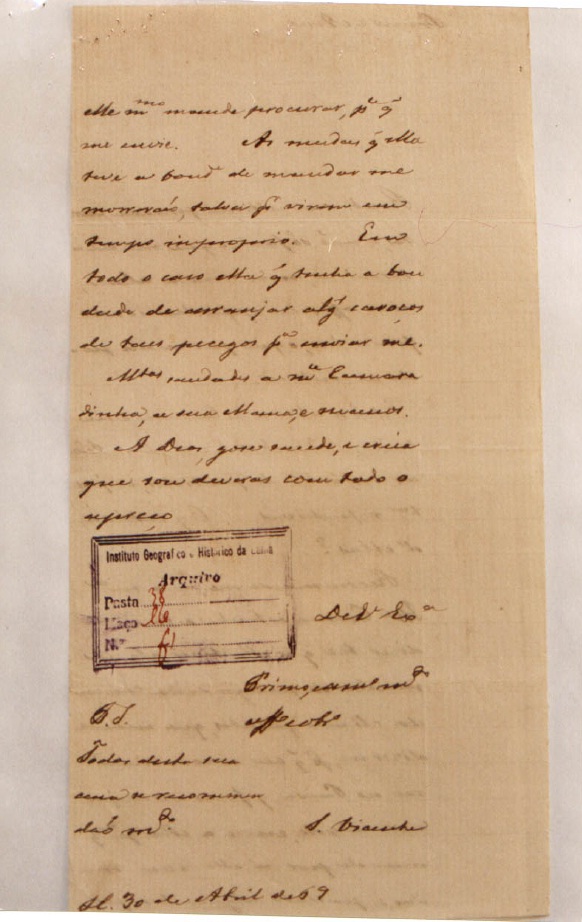 elle mmo mande procurar, pa q
me envie. As mudas q Ella
teve a bonde de mandar me
morrerão, talvez pr virem em
tempo improprio. Em
todo o caso Ella q tenha a bon
dade de arranjar algs carocos
de taes pecegos pa enviar me.
Mtas saudades a ma Camara
dinha, a sua Mama, e manos.
A Deos, gose saude, e creia
que sou deveras com todo o
apreço
Instituto Geografico e Historico da Bahia
Arquivo
Pasta 38
Maço
N.º
De V Exa
Primo, e amo mo
affo e obr
P.S.
Todos desta sua
casa se recommen
dão mo.
S. Vicente
30 de Abril de 69